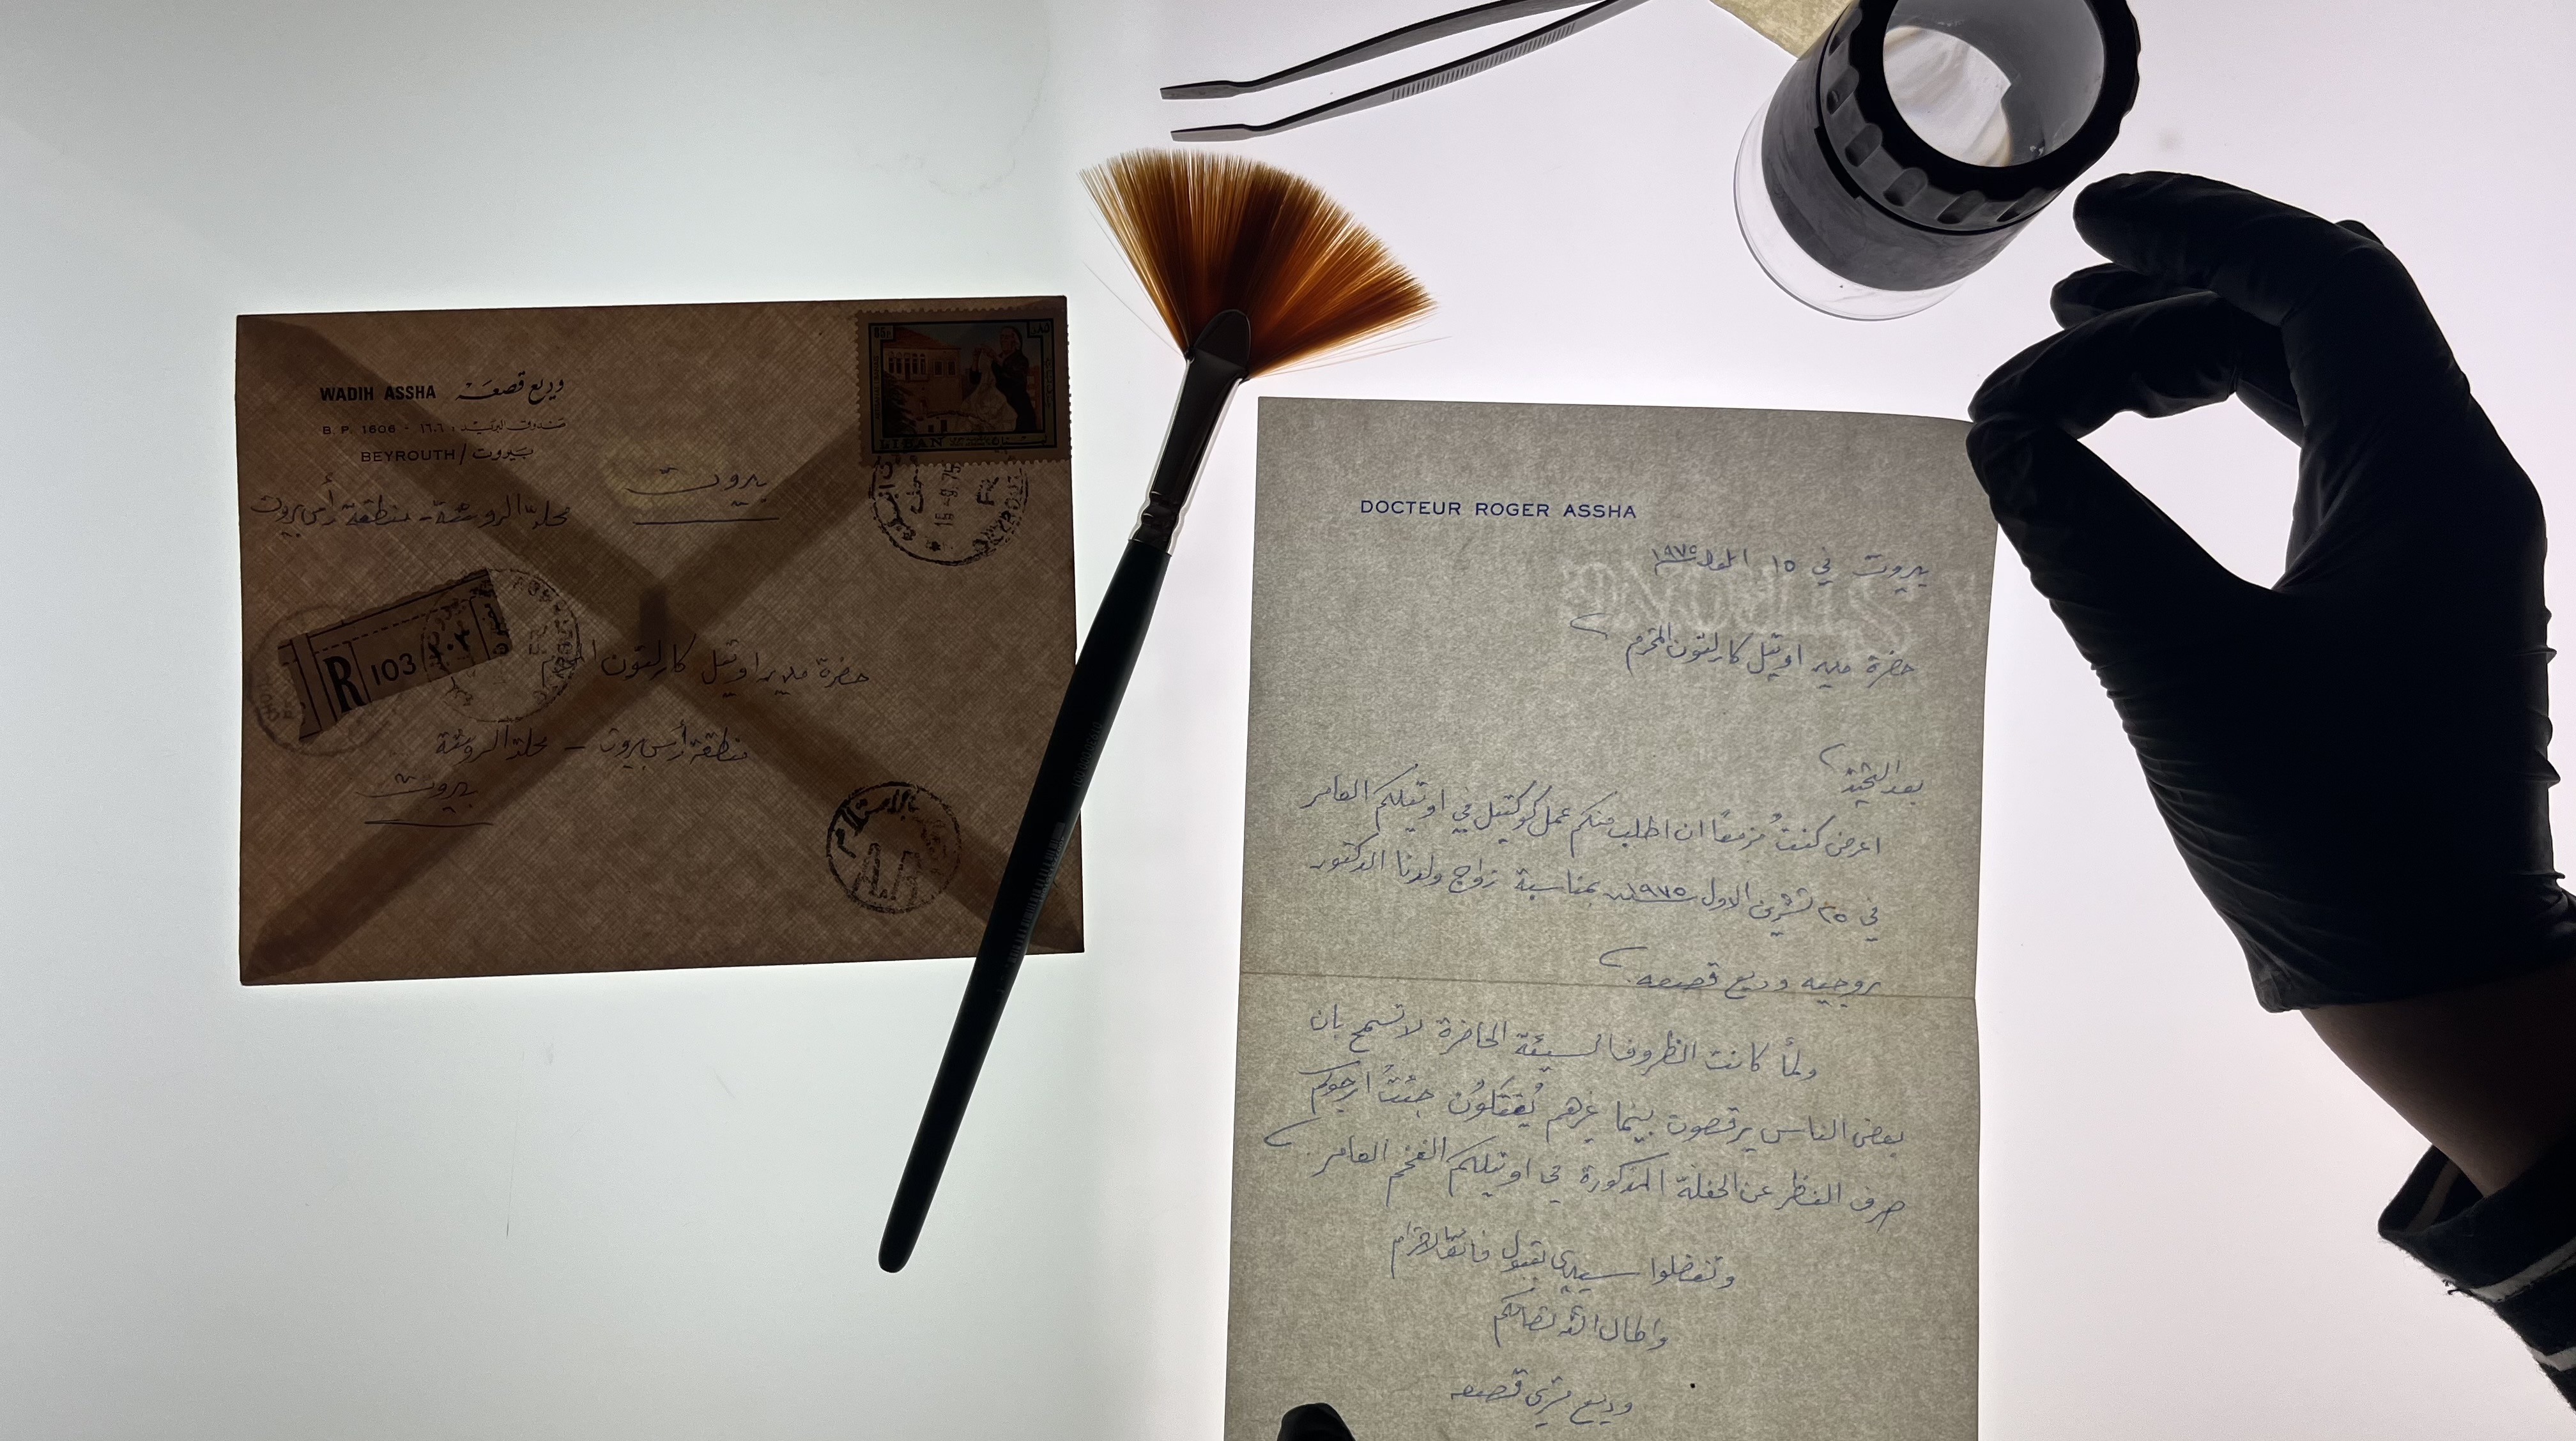 WADIH ASSHA وديع قصعه
B. P. 1606 - صندوق البريد : ١٦٠٦
BEYROUTH / بيروت
بيروت
محلة الروشة - منطقة رأس بيروت
LIBAN
16-9-75
R 103
حضرة مدير اوتيل كارلتون المحترم
منطقة رأس بيروت - محلة الروشة
بيروت
بالاستلام
DOCTEUR ROGER ASSHA
بيروت في ١٥ ايلول ١٩٧٥
حضرة مدير اوتيل كارلتون المحترم
بعد التحية
اعرض كنتُ مزمعاً ان اطلب منكم عمل كوكتيل في اوتيلكم العامر
في ٢٥ تشرين الاول ١٩٧٥ بمناسبة زواج ولدنا الدكتور
روجيه وديع قصعه
ولمّا كانت الظروف السيئة الحاضرة لا تسمح بان
بعض الناس يرقصون بينما غيرهم يُقتَلوُن جئتُ ارجوكم
صرف النظر عن الحفلة المذكورة في اوتيلكم الفخم العامر
وتفضلوا سيدي بقبول فائق الاحترام
واطال الله بقائكم
وديع قصعه